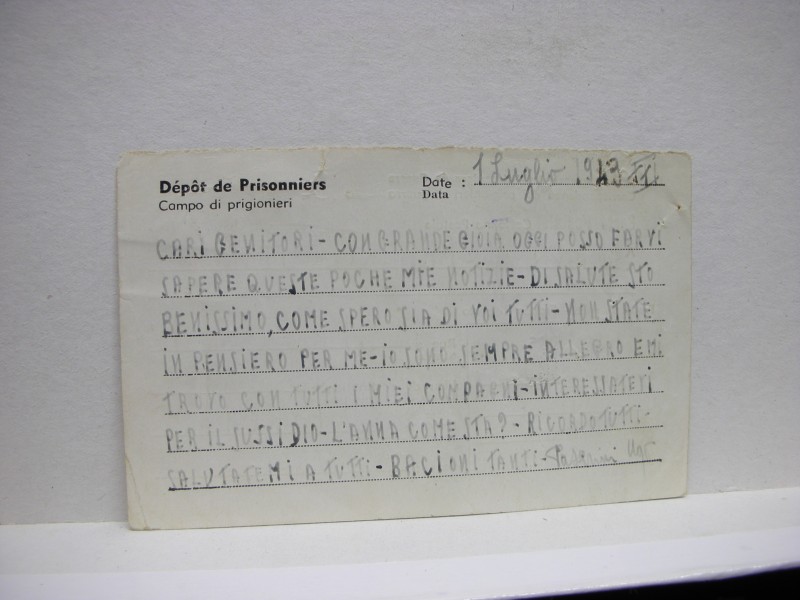 Dépôt de Prisonniers
Campo di prigionieri
Date : 1 Luglio 1943 XXI
Data
CARI GENITORI - CON GRANDE GIOIA OGGI POSSO FARVI
SAPERE QUESTE POCHE MIE NOTIZIE - DI SALUTE STO
BENISSIMO, COME SPERO SIA DI VOI TUTTI - NON STATE
IN PENSIERO PER ME - IO SONO SEMPRE ALLEGRO E MI
TROVO CON TUTTI I MIEI COMPAGNI - INTERESSATEVI
PER IL SUSSIDIO - L'ANNA COME STA? - RICORDO TUTTI -
SALUTATEMI A TUTTI - BACIONI TANTI -